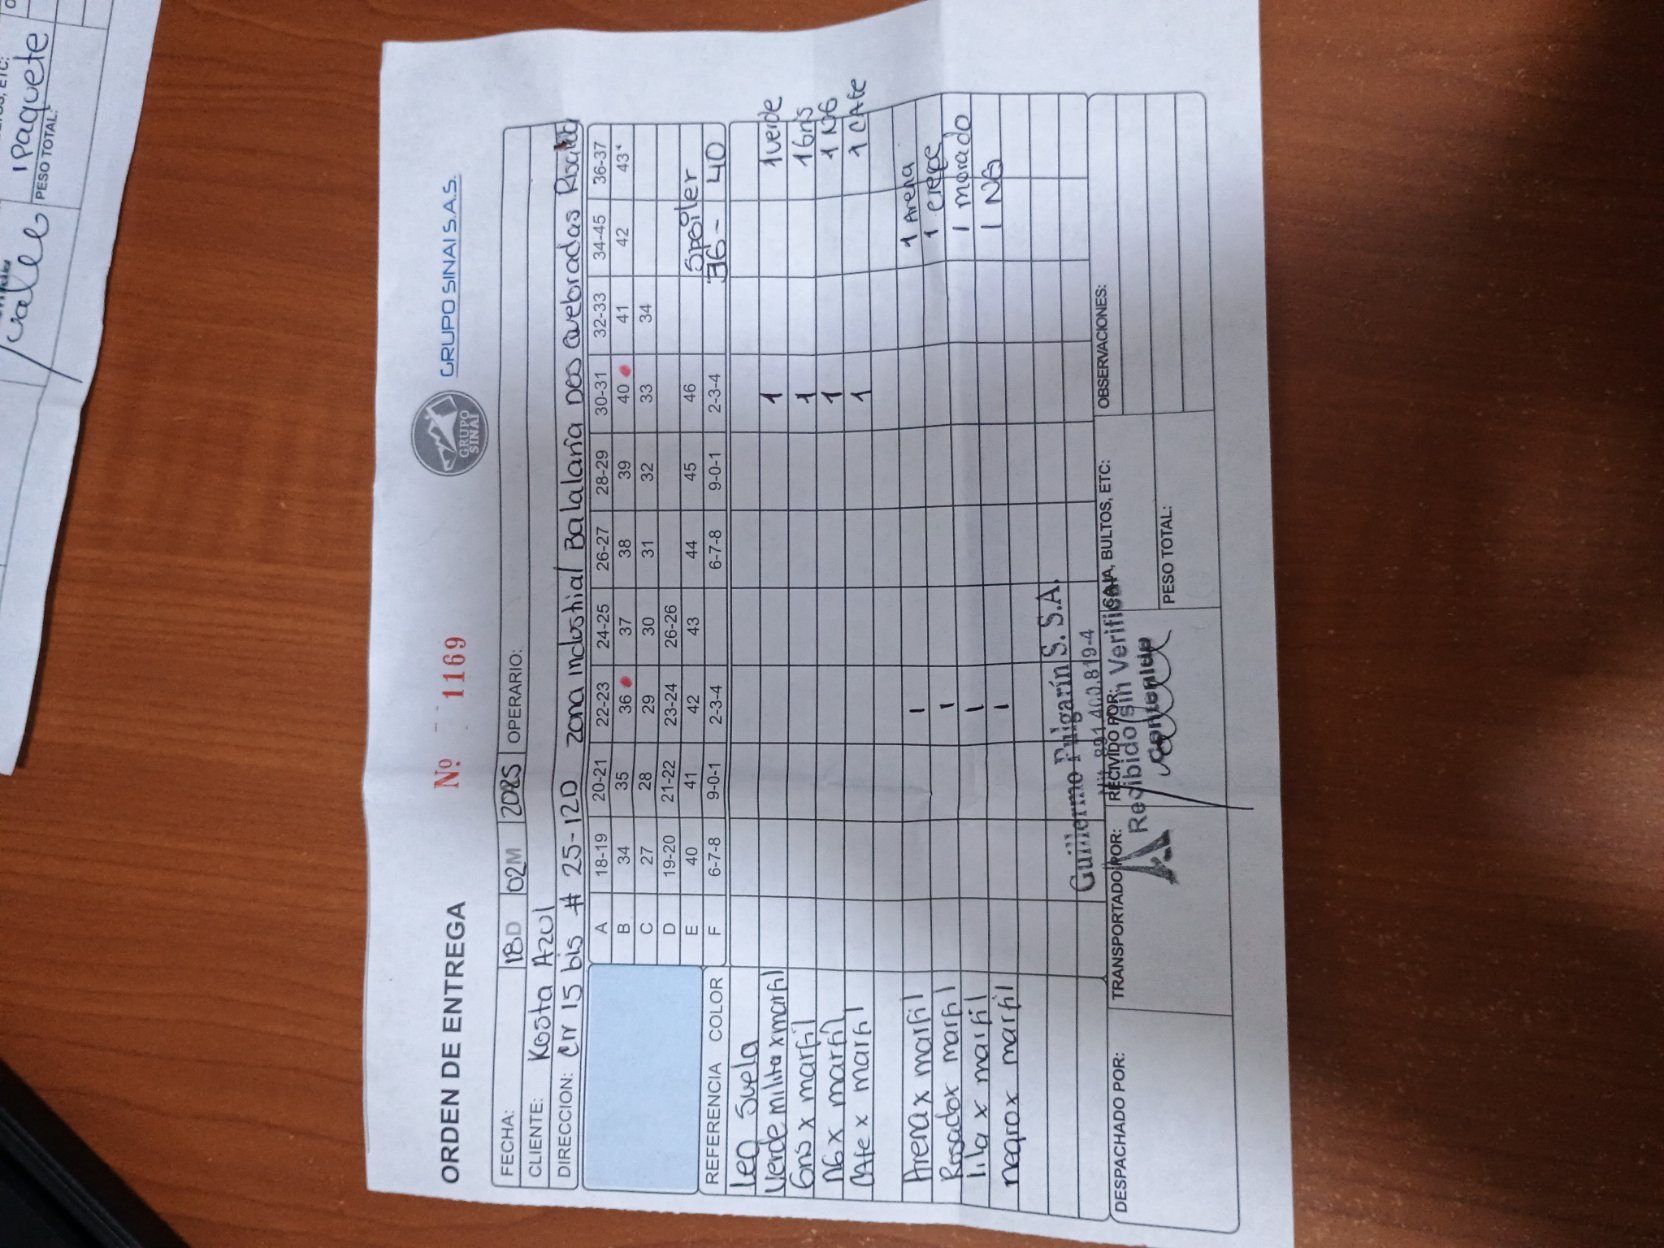 ORDEN DE ENTREGA
Nº 1169
GRUPO SINAI
GRUPO SINAI S.A.S.
FECHA: 18D 02M 2025 OPERARIO:
CLIENTE: Kosta Azul
DIRECCION: Cr 15 bis # 25-12D zona industrial Balalaria Dos Quebradas
A 18-19 20-21 22-23 24-25 26-27 28-29 30-31 32-33 34-45 36-37
B 34 35 36 37 38 39 40 41 42 43*
C 27 28 29 30 31 32 33 34
D 19-20 21-22 23-24 26-26
E 40 41 42 43 44 45 46 Spoiler
REFERENCIA COLOR F 6-7-8 9-0-1 2-3-4 6-7-8 9-0-1 2-3-4 36-40
Leo Suela
Verde milita x marfil 1 1 verde
Gris x marfil 1 1 Gris
NG x marfil 1 1 NG
CAfe x marfil 1 1 CAfe
Arena x marfil 1 1 Arena
Rosado x marfil 1 1
lila x marfil 1 1 morado
negro x marfil 1 1 NG
Guillermo Pulgarín S. S.A.
Nit. 891.400.819-4
Recibido sin Verificar
Contenido
DESPACHADO POR: TRANSPORTADO POR: RECIVIDO POR: CAJA, BULTOS, ETC: OBSERVACIONES:
PESO TOTAL:
ETC:
1 Paquete
PESO TOTAL: